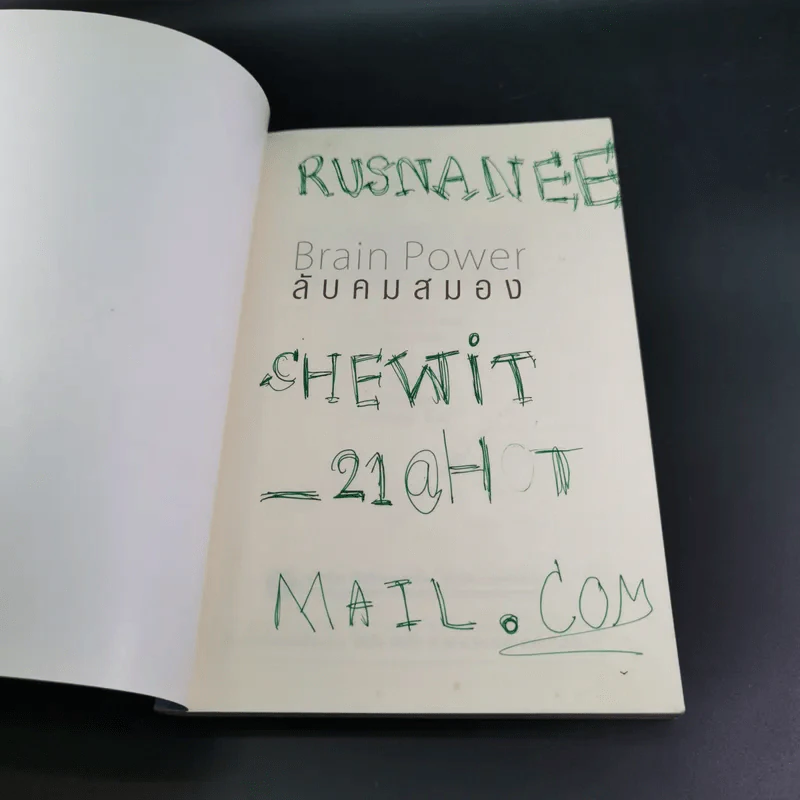 RUSNANEE
Brain Power
ลับคมสมอง
CHEWiT
_21@HOT
MAIL.COM